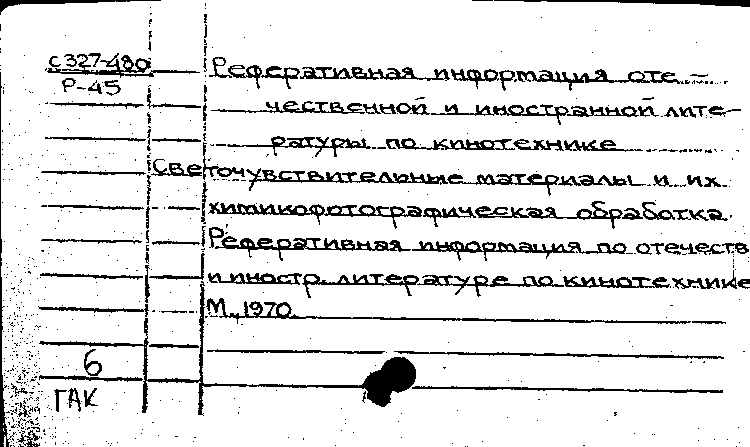 С327-480
Р-45
Реферативная информация оте-
чественной и иностранной лите-
ратуры по кинотехнике
Светочувствительные материалы и их
химикофотографическая обработка.
Реферативная информация по отечеств
и иностр. литературе по кинотехнике
М., 1970.
6
ГАК